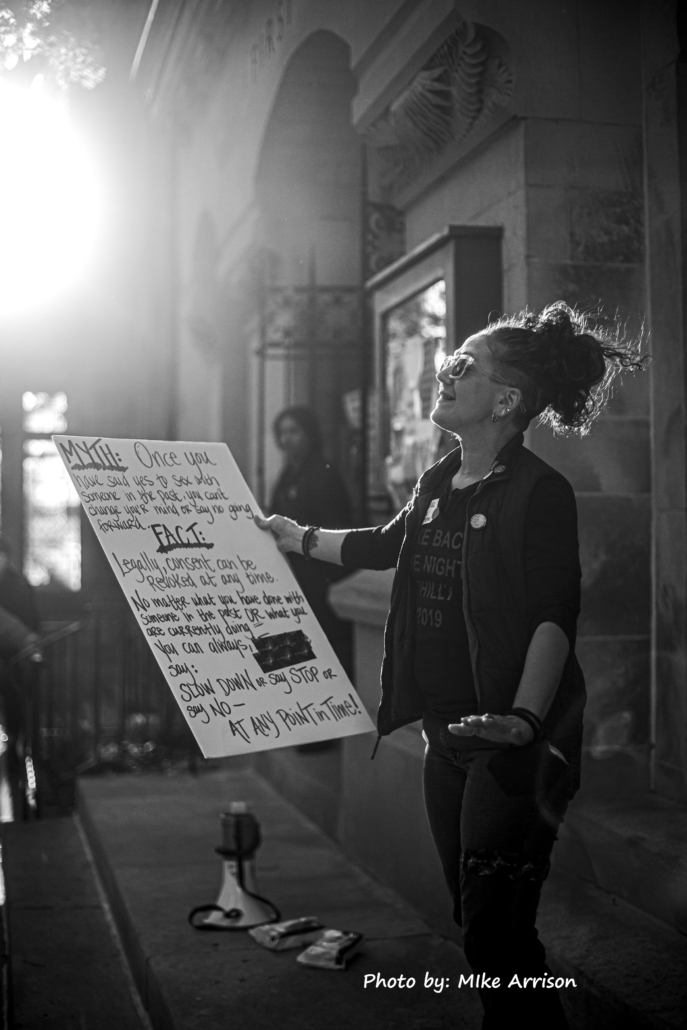 FIRST
MYTH: Once you
have said yes to sex with
someone in the past, you can't
change your mind or say no going
forward.
FACT:
Legally, consent can be
Revoked at any time.
No matter what you have done with
someone in the past OR what you
are currently doing -
You can always
say:
SLOW DOWN or say STOP or
say NO -
AT ANY POINT in Time!
KE BAC
E NIGHT
PHILLY
2019
Photo by: MIke Arrison